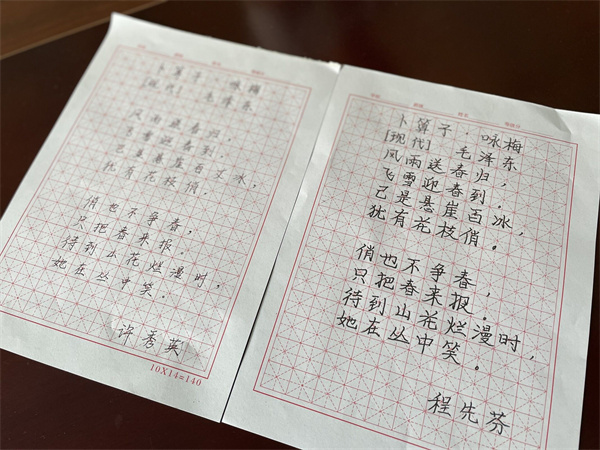 卜算子·咏梅
[现代] 毛泽东
风雨送春归，
飞雪迎春到．
已是悬崖百丈冰，
犹有花枝俏．
俏也不争春，
只把春来报．
待到山花烂漫时，
她在丛中笑．
许秀英
10X14=140
卜算子·咏梅
[现代] 毛泽东
风雨送春归，
飞雪迎春到．
已是悬崖百冰，
犹有花枝俏。
俏也不争春，
只把春来报。
待到山花烂漫时，
她在丛中笑。
程先芬